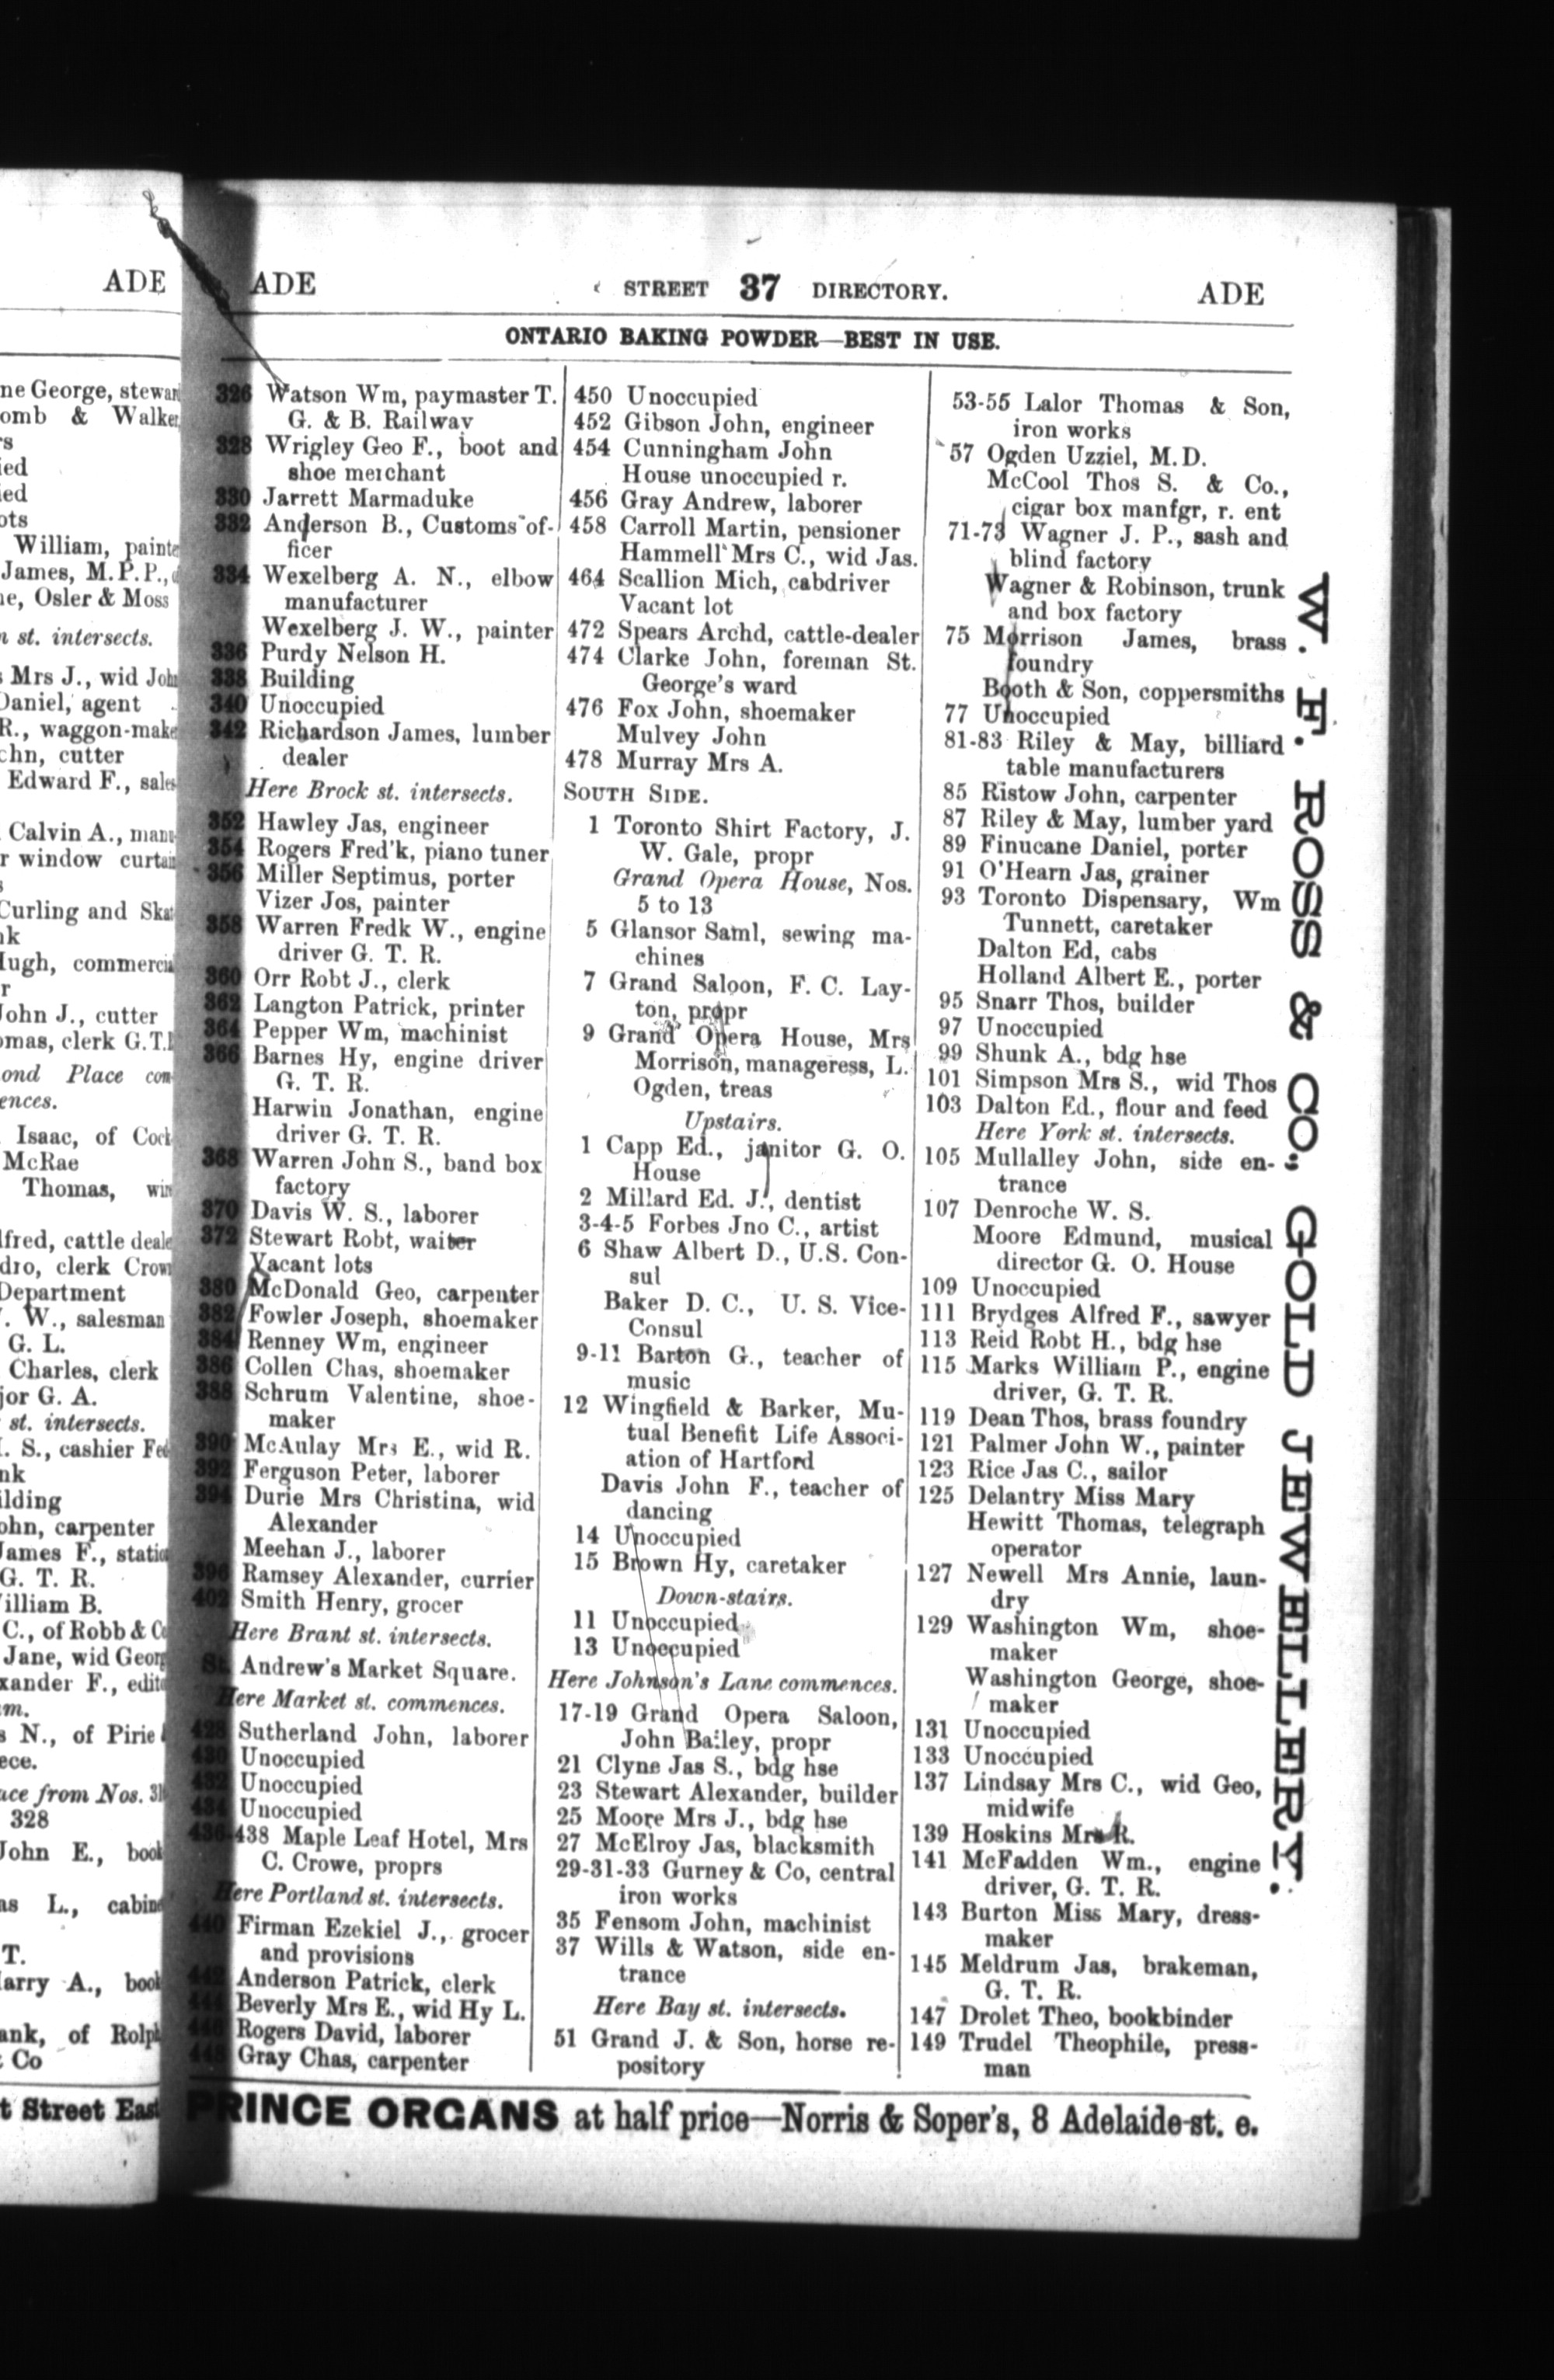 ADE
ne George, stewar
omb & Walker
rs
ied
ied
ots
William, painte
James, M.P.P.,
ne, Osler & Moss
st. intersects.
Mrs J., wid John
Daniel, agent
R., waggon-make
hn, cutter
Edward F., sales
Calvin A., manu
r window curtain
s
Curling and Skat
nk
Hugh, commercial
r
John J., cutter
omas, clerk G.T.
ond Place com
ences.
Isaac, of Cock
McRae
Thomas, win
lfred, cattle deale
dro, clerk Crown
Department
W., salesman
G. L.
Charles, clerk
jor G. A.
st. intersects.
. S., cashier Fed
nk
ilding
ohn, carpenter
James F., station
G. T. R.
illiam B.
C., of Robb & Co
Jane, wid Georg
xander F., edito
m.
s N., of Pirie
ece.
ace from Nos. 31
328
John E., book
as L., cabine
T.
arry A., book
ank, of Rolph
Co
t Street East
ADE
STREET 37 DIRECTORY.
ADE
ONTARIO BAKING POWDER—BEST IN USE.
326 Watson Wm, paymaster T.
G. & B. Railway
328 Wrigley Geo F., boot and
shoe merchant
330 Jarrett Marmaduke
332 Anderson B., Customs of-
ficer
334 Wexelberg A. N., elbow
manufacturer
Wexelberg J. W., painter
336 Purdy Nelson H.
338 Building
340 Unoccupied
342 Richardson James, lumber
dealer
Here Brock st. intersects.
352 Hawley Jas, engineer
354 Rogers Fred'k, piano tuner
356 Miller Septimus, porter
Vizer Jos, painter
358 Warren Fredk W., engine
driver G. T. R.
360 Orr Robt J., clerk
362 Langton Patrick, printer
364 Pepper Wm, machinist
366 Barnes Hy, engine driver
G. T. R.
Harwin Jonathan, engine
driver G. T. R.
368 Warren John S., band box
factory
370 Davis W. S., laborer
372 Stewart Robt, waiter
Vacant lots
380 McDonald Geo, carpenter
382 Fowler Joseph, shoemaker
384 Renney Wm, engineer
386 Collen Chas, shoemaker
388 Schrum Valentine, shoe-
maker
390 McAulay Mrs E., wid R.
392 Ferguson Peter, laborer
394 Durie Mrs Christina, wid
Alexander
Meehan J., laborer
396 Ramsey Alexander, currier
402 Smith Henry, grocer
Here Brant st. intersects.
St. Andrew's Market Square.
Here Market st. commences.
428 Sutherland John, laborer
430 Unoccupied
432 Unoccupied
434 Unoccupied
436-438 Maple Leaf Hotel, Mrs
C. Crowe, proprs
Here Portland st. intersects.
440 Firman Ezekiel J., grocer
and provisions
442 Anderson Patrick, clerk
444 Beverly Mrs E., wid Hy L.
446 Rogers David, laborer
448 Gray Chas, carpenter
450 Unoccupied
452 Gibson John, engineer
454 Cunningham John
House unoccupied r.
456 Gray Andrew, laborer
458 Carroll Martin, pensioner
Hammell Mrs C., wid Jas.
464 Scallion Mich, cabdriver
Vacant lot
472 Spears Archd, cattle-dealer
474 Clarke John, foreman St.
George's ward
476 Fox John, shoemaker
Mulvey John
478 Murray Mrs A.
SOUTH SIDE.
1 Toronto Shirt Factory, J.
W. Gale, propr
Grand Opera House, Nos.
5 to 13
5 Glansor Saml, sewing ma-
chines
7 Grand Saloon, F. C. Lay-
ton, propr
9 Grand Opera House, Mrs
Morrison, manageress, L.
Ogden, treas
Upstairs.
1 Capp Ed., janitor G. O.
House
2 Millard Ed. J., dentist
3-4-5 Forbes Jno C., artist
6 Shaw Albert D., U.S. Con-
sul
Baker D. C., U. S. Vice-
Consul
9-11 Barton G., teacher of
music
12 Wingfield & Barker, Mu-
tual Benefit Life Associ-
ation of Hartford
Davis John F., teacher of
dancing
14 Unoccupied
15 Brown Hy, caretaker
Down-stairs.
11 Unoccupied
13 Unoccupied
Here Johnson's Lane commences.
17-19 Grand Opera Saloon,
John Bailey, propr
21 Clyne Jas S., bdg hse
23 Stewart Alexander, builder
25 Moore Mrs J., bdg hse
27 McElroy Jas, blacksmith
29-31-33 Gurney & Co, central
iron works
35 Fensom John, machinist
37 Wills & Watson, side en-
trance
Here Bay st. intersects.
51 Grand J. & Son, horse re-
pository
53-55 Lalor Thomas & Son,
iron works
57 Ogden Uzziel, M.D.
McCool Thos S. & Co.,
cigar box manfgr, r. ent
71-73 Wagner J. P., sash and
blind factory
Wagner & Robinson, trunk
and box factory
75 Morrison James, brass
foundry
Booth & Son, coppersmiths
77 Unoccupied
81-83 Riley & May, billiard
table manufacturers
85 Ristow John, carpenter
87 Riley & May, lumber yard
89 Finucane Daniel, porter
91 O'Hearn Jas, grainer
93 Toronto Dispensary, Wm
Tunnett, caretaker
Dalton Ed, cabs
Holland Albert E., porter
95 Snarr Thos, builder
97 Unoccupied
99 Shunk A., bdg hse
101 Simpson Mrs S., wid Thos
103 Dalton Ed., flour and feed
Here York st. intersects.
105 Mullalley John, side en-
trance
107 Denroche W. S.
Moore Edmund, musical
director G. O. House
109 Unoccupied
111 Brydges Alfred F., sawyer
113 Reid Robt H., bdg hse
115 Marks William P., engine
driver, G. T. R.
119 Dean Thos, brass foundry
121 Palmer John W., painter
123 Rice Jas C., sailor
125 Delantry Miss Mary
Hewitt Thomas, telegraph
operator
127 Newell Mrs Annie, laun-
dry
129 Washington Wm, shoe-
maker
Washington George, shoe-
maker
131 Unoccupied
133 Unoccupied
137 Lindsay Mrs C., wid Geo,
midwife
139 Hoskins Mrs R.
141 McFadden Wm., engine
driver, G. T. R.
143 Burton Miss Mary, dress-
maker
145 Meldrum Jas, brakeman,
G. T. R.
147 Drolet Theo, bookbinder
149 Trudel Theophile, press-
man
W. F. ROSS & CO., GOLD JEWELLERY.
PRINCE ORGANS at half price—Norris & Soper's, 8 Adelaide-st. e.